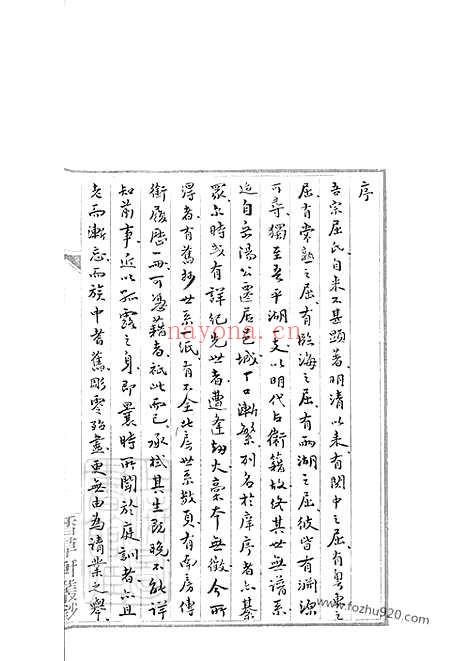 序
吾宗屈氏自来不甚顯著明清以来有関中之屈有粤東之
屈有常熟之屈有臨海之屈有兩湖之屈彼皆有渊源
可尋獨至吾平湖支以明代占衛籍故終其世無譜系
迨自岳陽公遷居邑城丁口漸繁列名於庠序者亦綦
眾尔時或有詳紀先世者遭逢劫火稾本無徵今所
得者有舊抄世系一纸有不全此房世系数頁有南房傳
衛履歷一册可憑藉者祇此而已承栻其生既晚不能詳
知前事近以孤露之身即曩時所聞於庭訓者亦且
老而漸忘而族中耆舊彫零殆盡更無由為請業之舉
香草軒叢鈔
nayona.cn
www.fozhu920.com